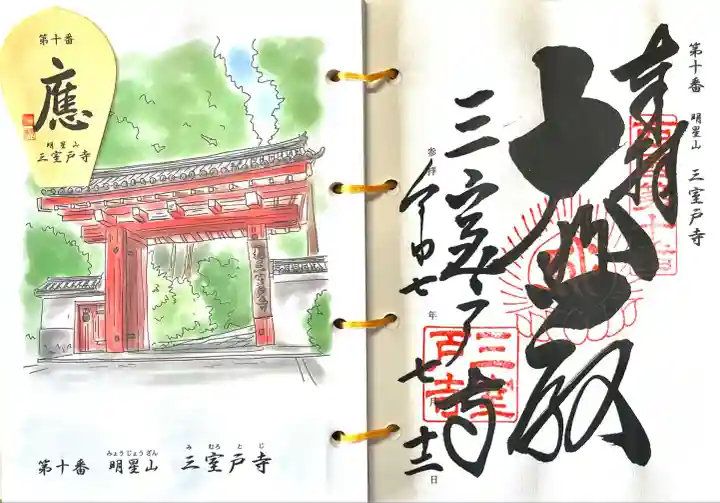 第十番
應
明星山
三室戸寺
みょうじょうざん み むろ と じ
第十番 明星山 三室戸寺
第十番 明星山 三室戸寺
奉拝
大悲殿
三室戸寺
参拝 令和七年七月十三日